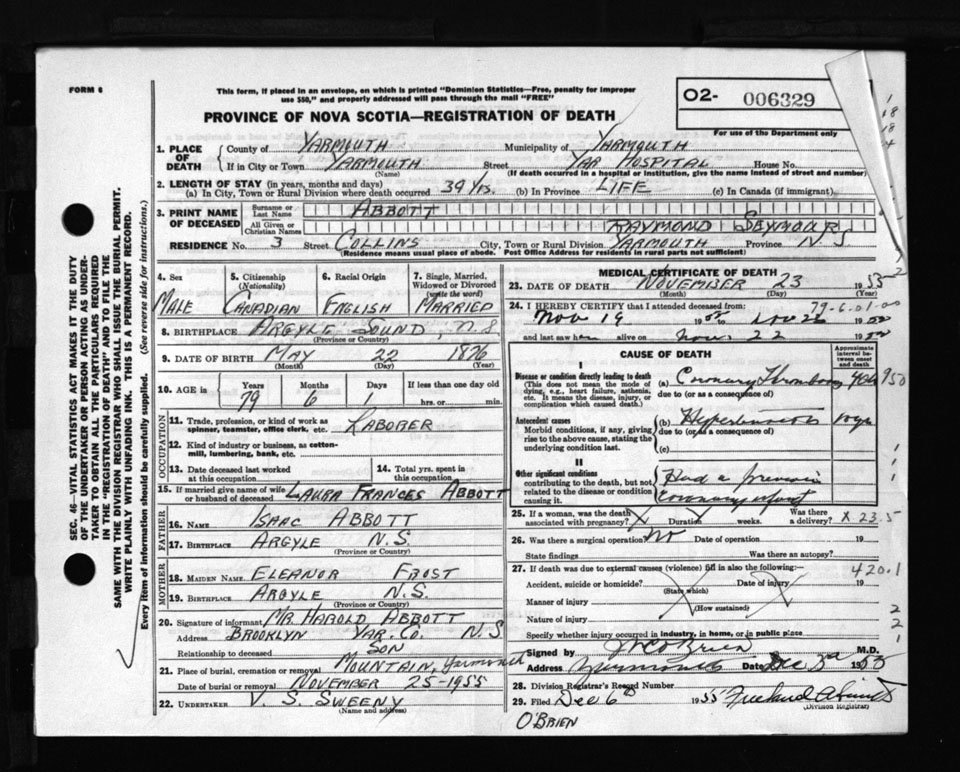 FORM 6
This form, if placed in an envelope, on which is printed "Dominion Statistics—Free, penalty for improper
use $50," and properly addressed will pass through the mail "FREE"
PROVINCE OF NOVA SCOTIA—REGISTRATION OF DEATH
02- 006329
For use of the Department only
SEC. 46—VITAL STATISTICS ACT MAKES IT THE DUTY
OF THE UNDERTAKER OR PERSON ACTING AS UNDER-
TAKER TO OBTAIN ALL THE PARTICULARS REQUIRED
IN THE "REGISTRATION OF DEATH" AND TO FILE THE
SAME WITH THE DIVISION REGISTRAR WHO SHALL ISSUE THE BURIAL PERMIT.
WRITE PLAINLY WITH UNFADING INK. THIS IS A PERMANENT RECORD.
Every item of information should be carefully supplied. (See reverse side for instructions.)
1. PLACE OF DEATH
County of YARMOUTH Municipality of YARMOUTH
If in City or Town YARMOUTH Street YAR HOSPITAL House No.
(Name) (If death occurred in a hospital or institution, give the name instead of street and number)
2. LENGTH OF STAY (in years, months and days)
(a) In City, Town or Rural Division where death occurred 39 Yrs. (b) In Province LIFE (c) In Canada (if immigrant)
3. PRINT NAME OF DECEASED
Surname or Last Name ABBOTT
All Given or Christian Names RAYMOND SEYMOUR
RESIDENCE No. 3 Street COLLINS City, Town or Rural Division YARMOUTH Province N S
(Residence means usual place of abode. Post Office Address for residents in rural parts not sufficient)
4. Sex MALE
5. Citizenship (Nationality) CANADIAN
6. Racial Origin ENGLISH
7. Single, Married, Widowed or Divorced (write the word) MARRIED
8. BIRTHPLACE ARGYLE SOUND, N.S
(Province or Country)
9. DATE OF BIRTH MAY 22 1876
(Month) (Day) (Year)
10. AGE in Years 79 Months 6 Days 1 If less than one day old
hrs. or min.
OCCUPATION
11. Trade, profession, or kind of work as
spinner, teamster, office clerk, etc. LABORER
12. Kind of industry or business, as cotton-
mill, lumbering, bank, etc.
13. Date deceased last worked
at this occupation
14. Total yrs. spent in
this occupation
15. If married give name of wife
or husband of deceased LAURA FRANCES ABBOTT
FATHER
16. NAME ISAAC ABBOTT
17. BIRTHPLACE ARGYLE N.S.
(Province or Country)
MOTHER
18. MAIDEN NAME ELEANOR FROST
19. BIRTHPLACE ARGYLE N.S.
(Province or Country)
20. Signature of informant MR. HAROLD ABBOTT
Address BROOKLYN YAR. CO. N.S
Relationship to deceased SON
21. Place of burial, cremation or removal MOUNTAIN, Yarmouth
Date of burial or removal NOVEMBER 25-1955
22. UNDERTAKER V. S. SWEENY
(Name and address)
MEDICAL CERTIFICATE OF DEATH
23. DATE OF DEATH NOVEMBER 23 1955
(Month) (Day) (Year)
24. I HEREBY CERTIFY that I attended deceased from: 79-6-01-00
Nov 19 19 to Nov 22 19
and last saw h alive on Nov. 22 19
CAUSE OF DEATH
Approximate interval between onset and death
I
Disease or condition directly leading to death
(This does not mean the mode of
dying, e.g., heart failure, asthenia,
etc. It means the disease, injury, or
complication which caused death.)
(a) Coronary Thrombosis
due to (or as a consequence of)
Antecedent causes
Morbid conditions, if any, giving
rise to the above cause, stating the
underlying condition last.
(b) Hypertension
due to (or as a consequence of)
(c)
II
Other significant conditions
contributing to the death, but not
related to the disease or condition
causing it.
Had a previous
coronary infarct
25. If a woman, was the death
associated with pregnancy? Duration weeks. Was there a delivery? X 23.5
26. Was there a surgical operation? No Date of operation 19
State findings Was there an autopsy?
27. If death was due to external causes (violence) fill in also the following:— 420.1
Accident, suicide or homicide? Date of injury 19
(State which)
Manner of injury
(How sustained)
Nature of injury
Specify whether injury occurred in industry, in home, or in public place
Signed by O'Brien M.D.
Address Yarmouth Date Dec 3rd 1955
28. Division Registrar's Record Number
29. Filed Dec 6 1955
(Division Registrar)
O'BRIEN